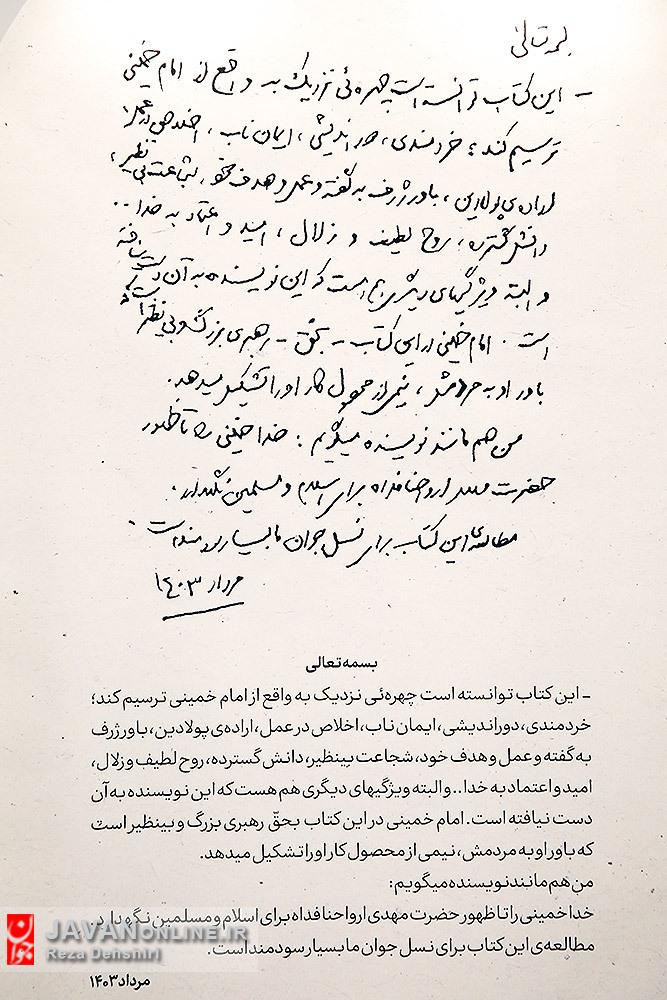 بسمه تعالی
- این کتاب توانسته است چهره‌ئی نزدیک به واقع از امام خمینی
ترسیم کند؛ خردمندی، دوراندیشی، ایمان ناب، اخلاص در عمل،
اراده‌ی پولادین، باور ژرف به گفته و عمل و هدف خود، شجاعت بی نظیر،
دانش گسترده، روح لطیف و زلال، امید و اعتماد به خدا ..
و البته ویژگیهای دیگری هم هست که این نویسنده به آن دست نیافته
است. امام خمینی در این کتاب - بحق - رهبری بزرگ و بی نظیر است که
باور او به مردمش، نیمی از محصول کار او را تشکیل میدهد.
من هم مانند نویسنده میگویم: خدا خمینی را تا ظهور
حضرت مهدی ارواحنا فداه برای اسلام و مسلمین نگهدارد.
مطالعه‌ی این کتاب برای نسل جوان ما بسیار سودمند است.
مرداد ۱۴۰۳
بسمه تعالی
- این کتاب توانسته است چهره‌ئی نزدیک به واقع از امام خمینی ترسیم کند؛
خردمندی، دوراندیشی، ایمان ناب، اخلاص در عمل، اراده‌ی پولادین، باور ژرف
به گفته و عمل و هدف خود، شجاعت بینظیر، دانش گسترده، روح لطیف و زلال،
امید و اعتماد به خدا.. و البته ویژگیهای دیگری هم هست که این نویسنده به آن
دست نیافته است. امام خمینی در این کتاب بحقّ رهبری بزرگ و بینظیر است
که باور او به مردمش، نیمی از محصول کار او را تشکیل میدهد.
من هم مانند نویسنده میگویم:
خدا خمینی را تا ظهور حضرت مهدی ارواحنا فداه برای اسلام و مسلمین نگهدارد.
مطالعه‌ی این کتاب برای نسل جوان ما بسیار سودمند است.
مرداد ۱۴۰۳
جوان
JAVANONLINE.IR
Reza Dehshiri